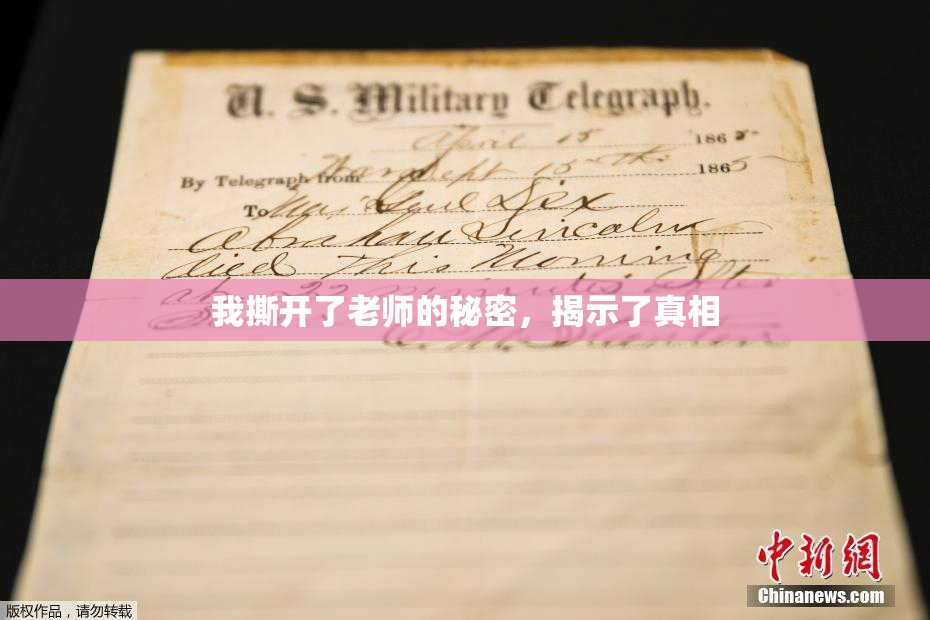 U. S. Military Telegraph.
April 15 1865
By Telegraph from War Dept 15th 1865
To Maj Genl Dix
Abraham Lincoln
died This Morning
at 22 minutes after
我撕开了老师的秘密，揭示了真相
中新网
Chinanews.com
版权作品，请勿转载